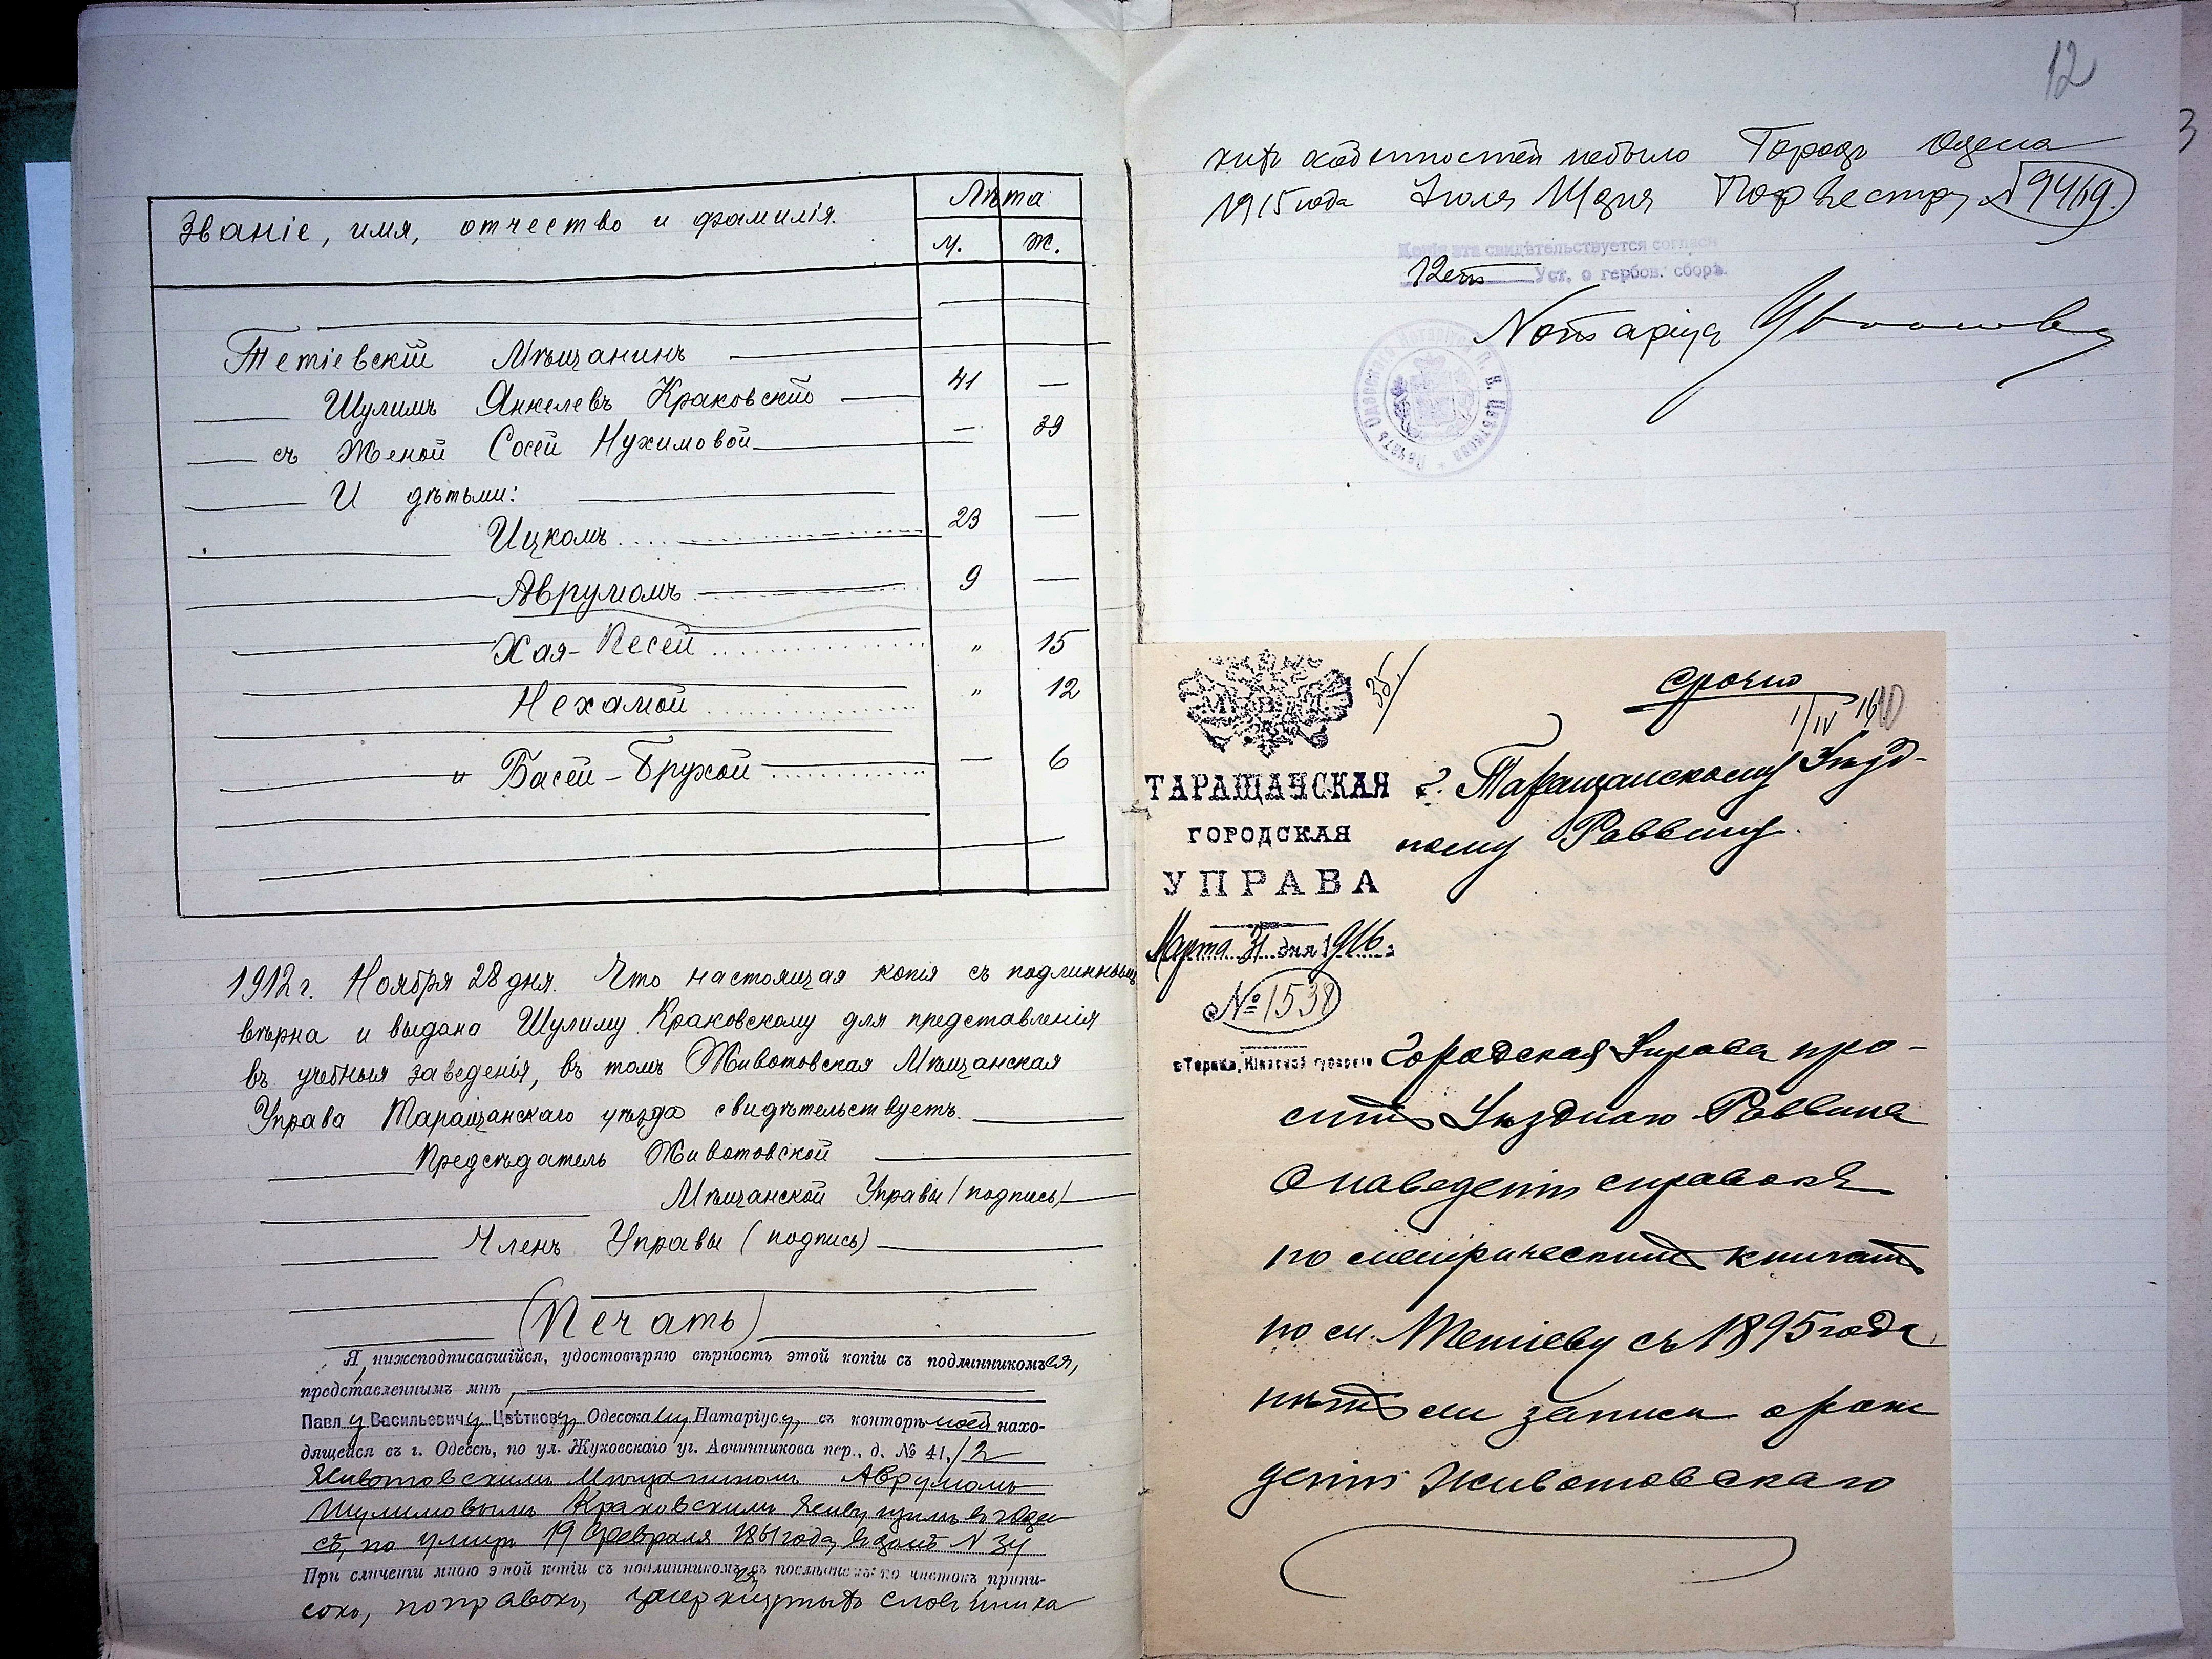 Званіе, имя, отчество и фамилія.
Лѣта
м.
ж.
Тетіевскій Мѣщанинъ
Шулимъ Янкелевъ Краковскій 41 —
съ Женой Сосей Нухимовой — 39
И дѣтьми:
Ицкомъ 23 —
Аврумомъ 9 —
Хая-Песей " 15
Нехамой " 12
и Басей-Брухой — 6
1912 г. Ноября 28 дня. Что настоящая копія съ подлиннымъ
вѣрна и выдана Шулиму Краковскому для представленія
въ учебныя заведенія, въ томъ Животовская Мѣщанская
Управа Таращанскаго уѣзда свидѣтельствуетъ.
Предсѣдатель Животовской
Мѣщанской Управы (подпись)
Членъ Управы (подпись)
(Печать)
Я, нижеподписавшійся, удостовѣряю вѣрность этой копіи съ подлинникомъ ея,
представленнымъ мнѣ,
Павлу Васильевичу Цвѣткову, Одесскому Нотаріусу, въ конторѣ моей нахо-
дящейся въ г. Одессѣ, по ул. Жуковскаго уг. Авчинникова пер., д. № 41/2
Животовскимъ мѣщаниномъ Аврумомъ
Шулимовымъ Краковскимъ живущимъ въ Одес-
сѣ, по улицѣ 19 Февраля 1861 года, въ домѣ N 34
При сличеніи мною этой копіи съ подлинникомъ въ послѣднемъ подчистокъ, припи-
сокъ, поправокъ, зачеркнутыхъ словъ и ника
12
кихъ особенностей небыло Городъ Одесса
1915 года Іюля дня По реестру N 9469.
Копія эта свидѣтельствуется соглас
12 ст Уст. о гербов. сборѣ
Нотаріусъ
Печать Одесскаго Нотаріуса П. В. Цвѣткова
М.В.Д.
35/
срочно
1/IV 16
ТАРАЩАНСКАЯ
ГОРОДСКАЯ
УПРАВА
Марта 31 дня 1916
№ 1538
г. Тараща, Кіевской губерніи
г. Таращанскому Уѣзд-
ному Раввину.
Городская Управа про-
ситъ Уѣзднаго Раввина
о наведеніи справокъ
по метрическимъ книгамъ
по м. Тетіеву съ 1895 года
нѣтъ ли записи о рож
деніи Животовскаго